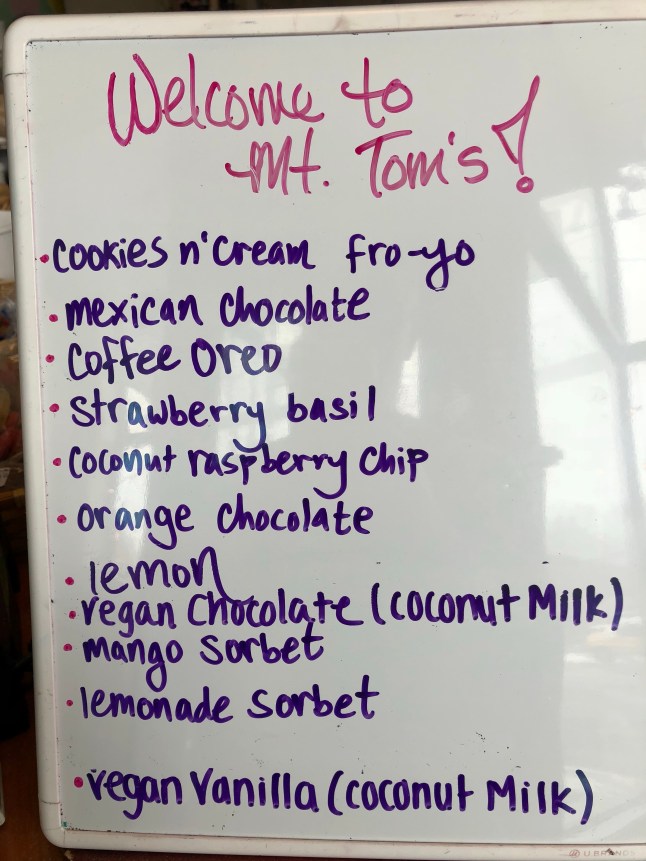 Welcome to
Mt. Tom's!
• cookies n' Cream fro-yo
• mexican chocolate
• Coffee Oreo
• Strawberry basil
• Coconut raspberry Chip
• orange chocolate
• lemon
• vegan Chocolate (coconut Milk)
• mango sorbet
• lemonade sorbet
• vegan Vanilla (coconut Milk)
U BRANDS